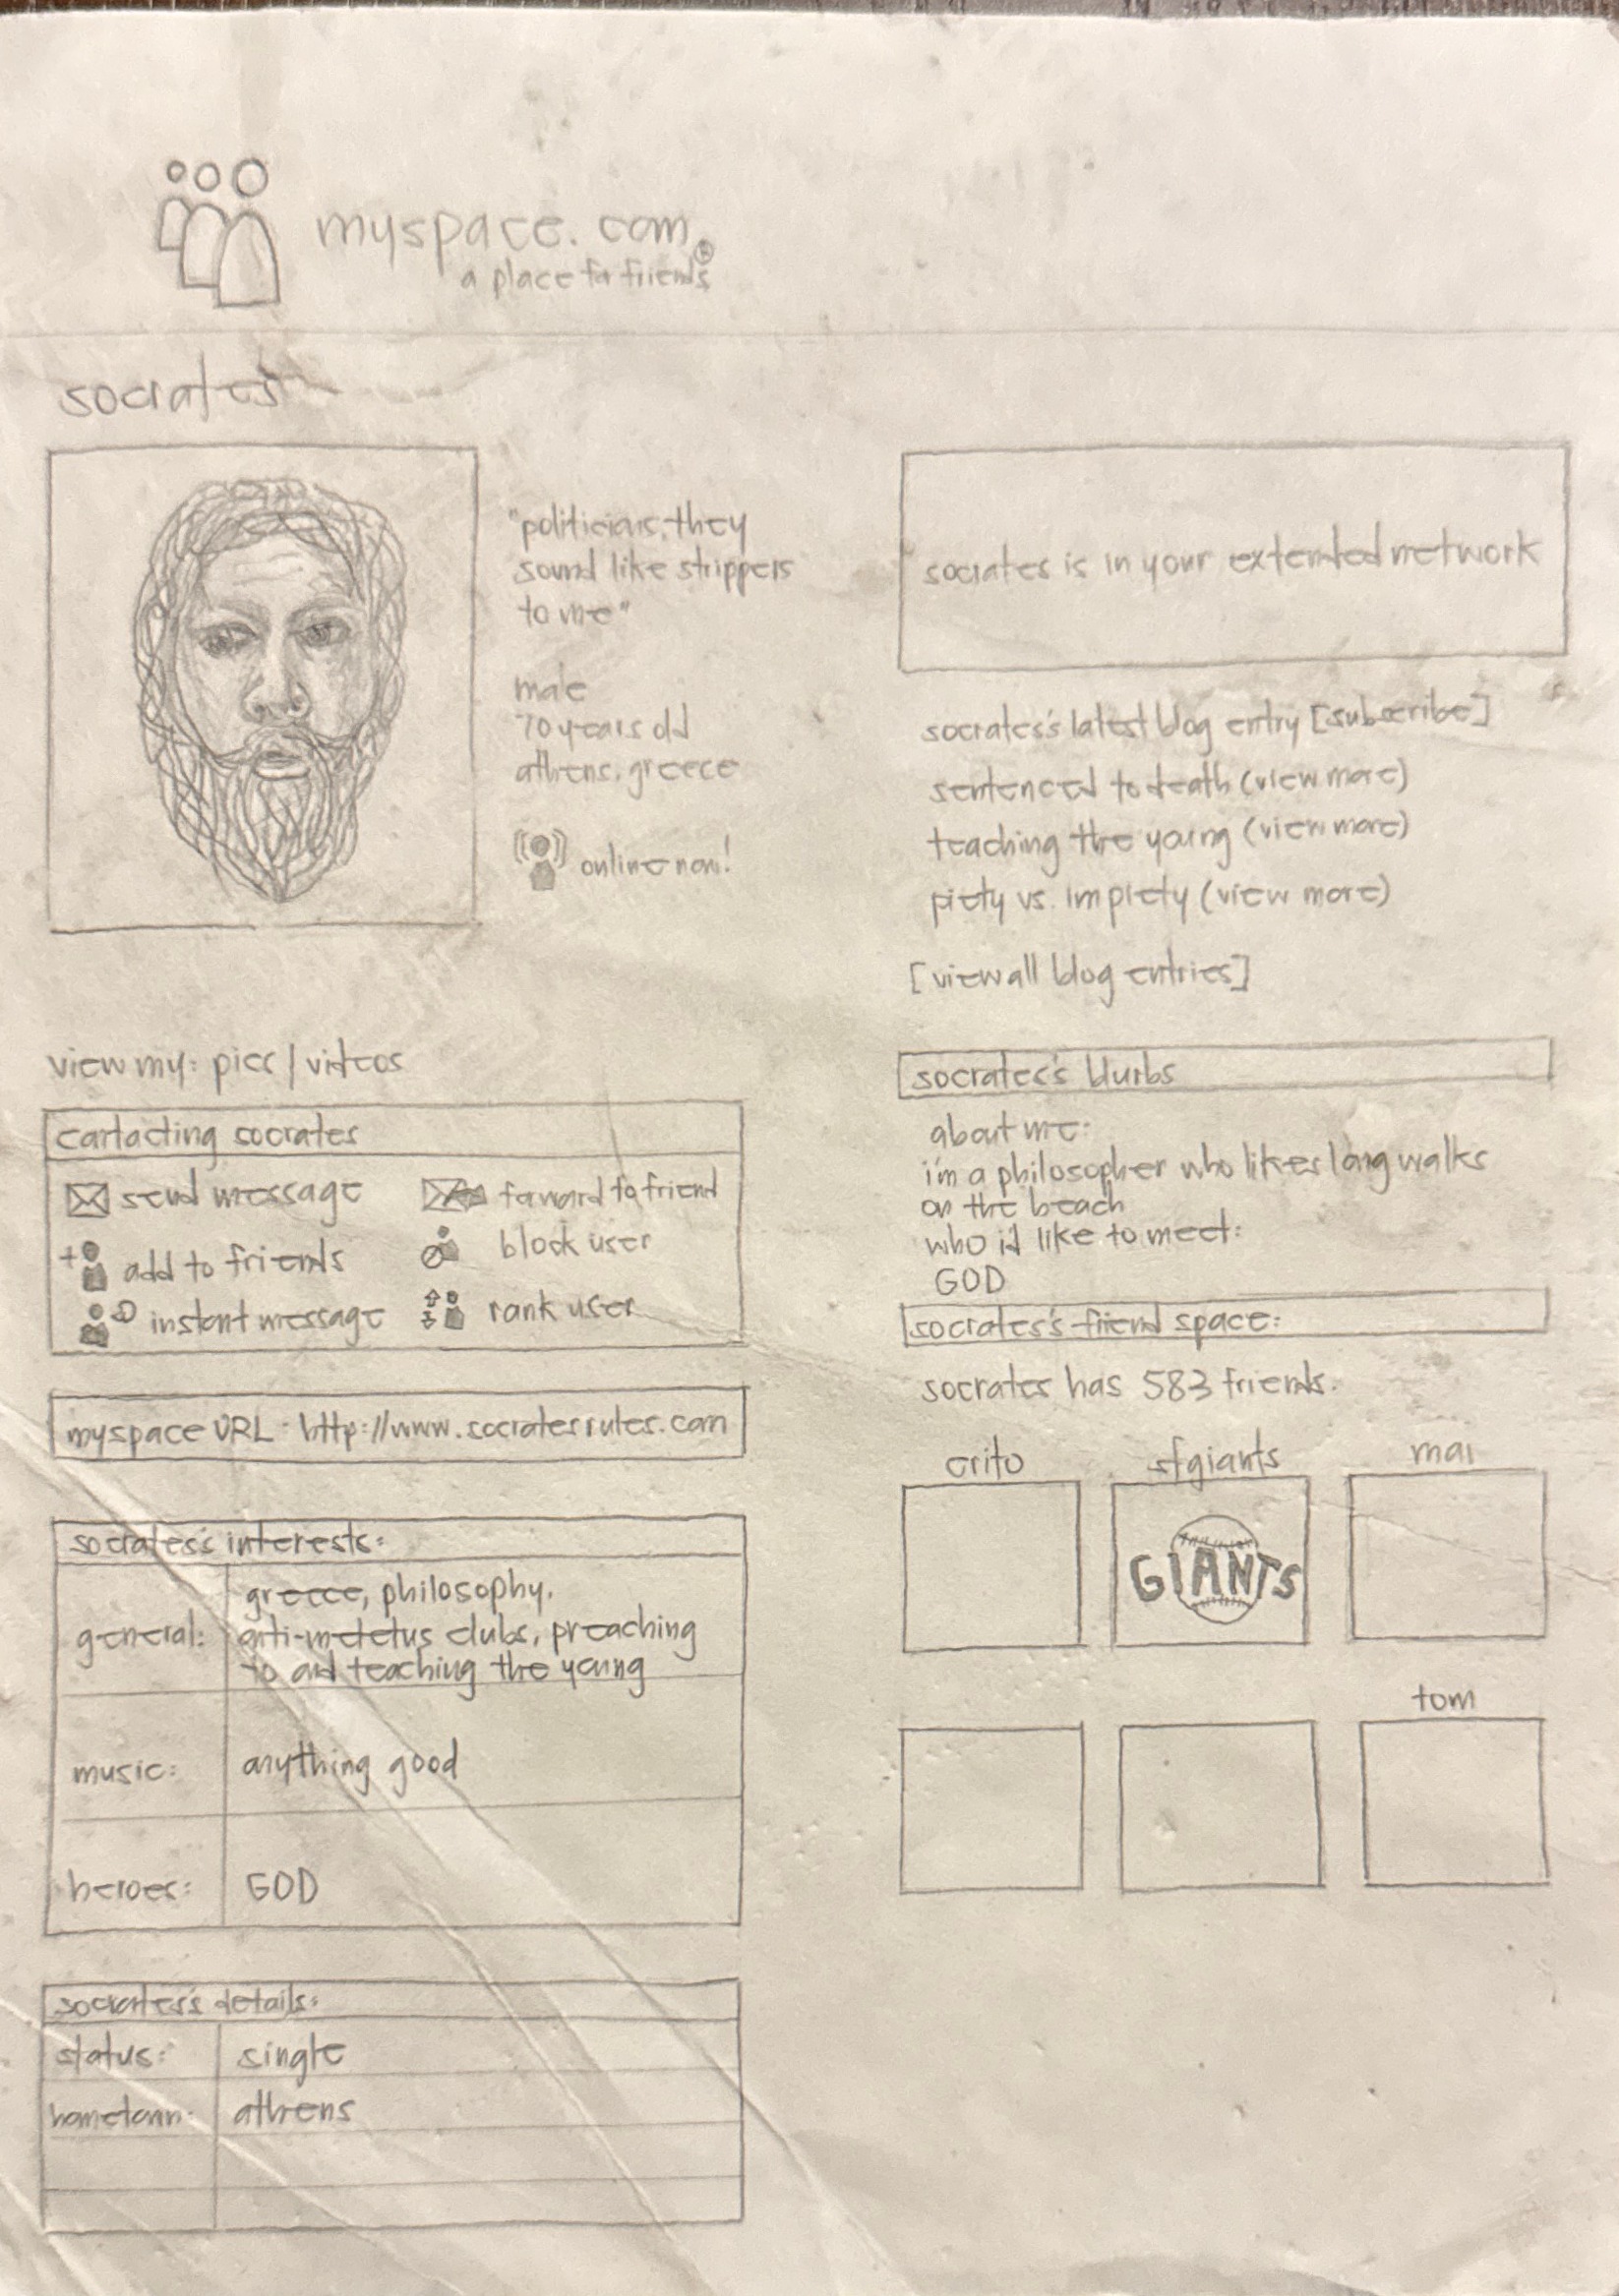 myspace.com®
a place for friends
socrates
"politicians, they
sound like strippers
to me"
male
70 years old
athens, greece
online now!
view my: pics / videos
contacting socrates
send message
forward to friend
add to friends
block user
instant message
rank user
myspace URL: http://www.socratesrules.com
socrates's interests:
general:
greece, philosophy,
anti-meletus clubs, preaching
to and teaching the young
music:
anything good
heroes:
GOD
socrates's details:
status:
single
hometown:
athens
socrates is in your extended network
socrates's latest blog entry [subscribe]
sentenced to death (view more)
teaching the young (view more)
piety vs. impiety (view more)
[view all blog entries]
socrates's blurbs
about me:
i'm a philosopher who likes long walks
on the beach
who i'd like to meet:
GOD
socrates's friend space:
socrates has 583 friends.
crito
sfgiants
mai
GIANTS
tom